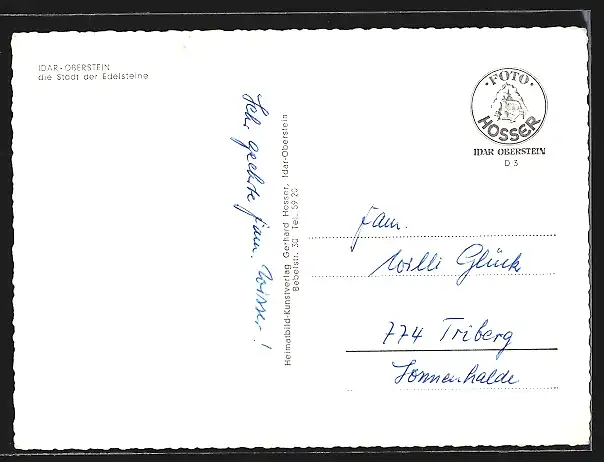 IDAR-OBERSTEIN
die Stadt der Edelsteine
Sehr geehrte Fam. Wisser!
Heimatbild-Kunstverlag Gerhard Hosser, Idar-Oberstein
Bebelstr. 30 Tel. 59 20
· FOTO ·
HOSSER
IDAR OBERSTEIN
D 3
Fam.
Willi Glück
774 Triberg
Sonnenhalde